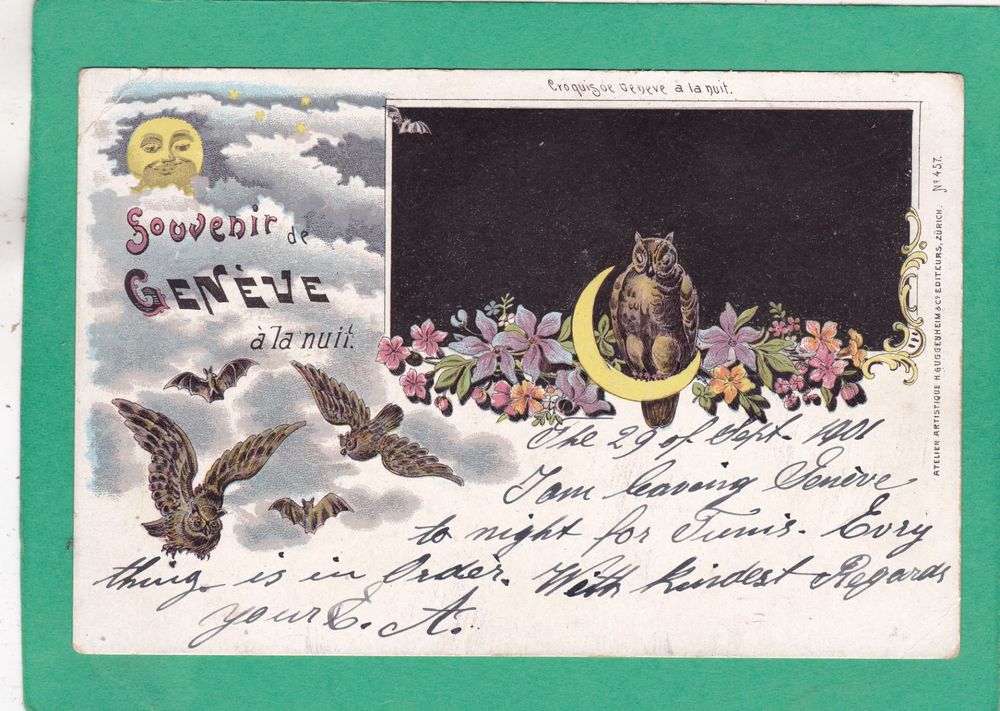 Croquis de Genève à la nuit.
Souvenir de
GENÈVE
à la nuit.
ATELIER ARTISTIQUE H. GUGGENHEIM & Cº EDITEURS, ZÜRICH. Nº 457.
The 29 of Sept. 1901
I am leaving Genève
to night for Tunis. Evry
thing is in Order. With kindest Regards
your E. A.